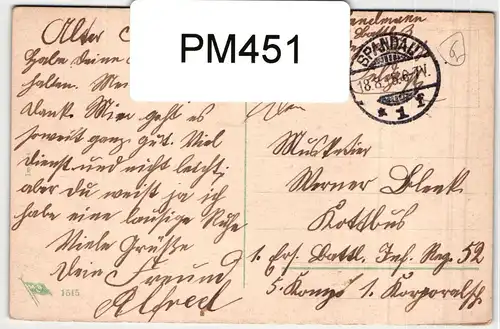 Alter
PM451
SPANDAU
Habe deine
18.8.
6-7V.
halten.
* 1 f
Dank. Mir geht es
soweit ganz gut. Viel
dienst und nicht leicht,
aber Du weist ja ich
habe eine lausige Ruhe
Viele Grüße
Dein Freund
Alfred
1515
Musketier
Werner Bleek
Kottbus
1. Ers. Battl. Inf. Reg. 52
5. Komp. 1. Korporalsch.